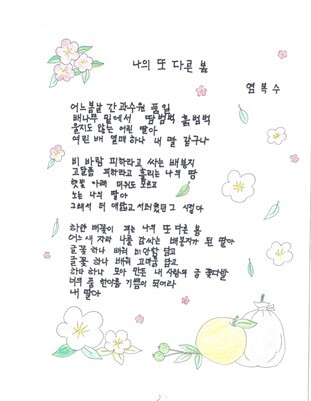 나의 또 다른 봄
염복수
어느 봄날 간 과수원 품일
배나무 밑에서 땀범벅 흙범벅
울지도 않는 어린 딸아
여린 배 열매 하나 내 딸 같구나
비 바람 피하라고 싸는 배봉지
고달픔 피하라고 흘리는 나의 땀
햇빛 아래 더위도 모르고
노는 나의 딸아
그래서 더 애닯고 서러웠던 그 시절아
하얀 배꽃이 피는 나의 또 다른 봄
어느새 자라 나를 감싸는 배봉지가 된 딸아
글꽃 하나 배워 미안함 담고
글꽃 하나 배워 고마움 담고
하나 하나 모아 만든 내 사랑의 글 꽃다발
너의 품 한아름 기쁨이 되어라
내 딸아